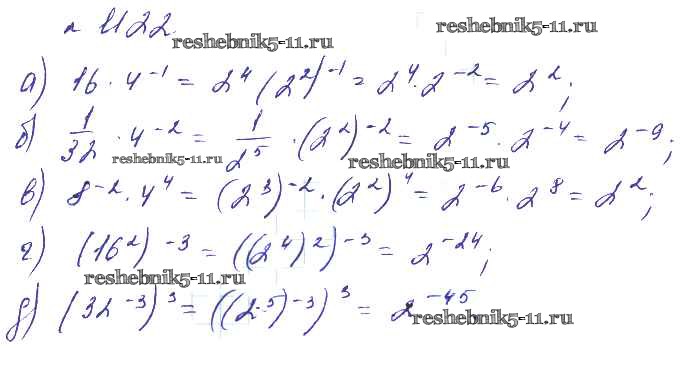 № 1122.
reshebnik5-11.ru reshebnik5-11.ru
а) 16 · 4⁻¹ = 2⁴ (2²)⁻¹ = 2⁴ · 2⁻² = 2²;
б) 1/32 · 4⁻² = 1/2⁵ · (2²)⁻² = 2⁻⁵ · 2⁻⁴ = 2⁻⁹;
reshebnik5-11.ru reshebnik5-11.ru
в) 8⁻² · 4⁴ = (2³)⁻² · (2²)⁴ = 2⁻⁶ · 2⁸ = 2²;
г) (16²)⁻³ = ((2⁴)²)⁻³ = 2⁻²⁴;
reshebnik5-11.ru
д) (32⁻³)³ = ((2⁵)⁻³)³ = 2⁻⁴⁵
reshebnik5-11.ru